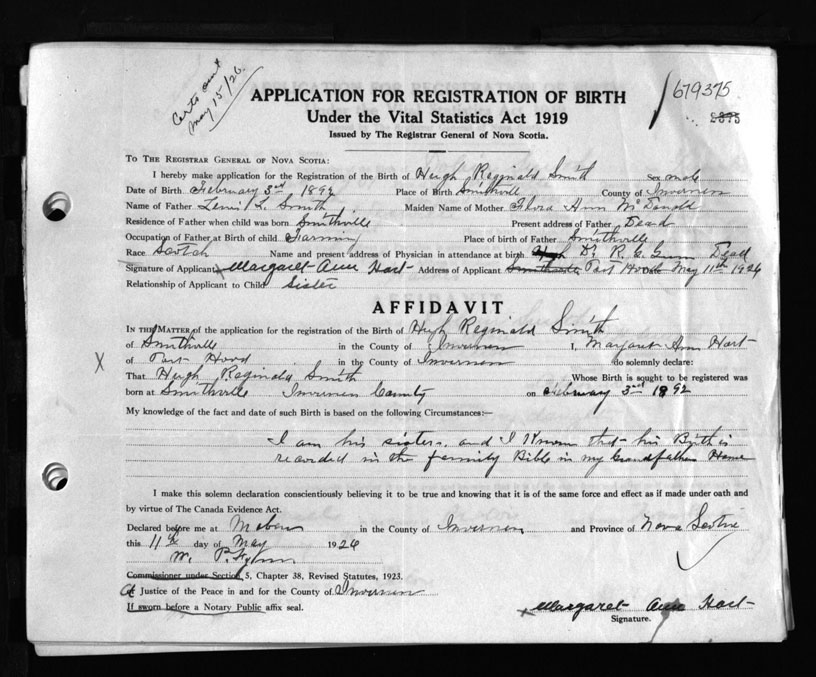 Certs sent
May 15/26.
APPLICATION FOR REGISTRATION OF BIRTH
679375
Under the Vital Statistics Act 1919
8375
Issued by The Registrar General of Nova Scotia.
TO THE REGISTRAR GENERAL OF NOVA SCOTIA:
I hereby make application for the Registration of the Birth of Hugh Reginald Smith Sex male
Date of Birth February 3rd 1892 Place of Birth Smithville County of Inverness
Name of Father Lewis L. Smith Maiden Name of Mother Flora Ann McDonald
Residence of Father when child was born Smithville Present address of Father Dead
Occupation of Father at Birth of child Farming Place of birth of Father Smithville
Race Scotch Name and present address of Physician in attendance at birth Hugh Dr R. C. Gunn Dead
Signature of Applicant Margaret Ann Hart Address of Applicant Smithville Port Hood Date May 11th 1926
Relationship of Applicant to Child Sister
AFFIDAVIT
IN THE MATTER of the application for the registration of the Birth of Hugh Reginald Smith
of Smithville in the County of Inverness I, Margaret Ann Hart
X of Port Hood in the County of Inverness do solemnly declare:
That Hugh Reginald Smith Whose Birth is sought to be registered was
born at Smithville Inverness County on February 3rd 1892
My knowledge of the fact and date of such Birth is based on the following Circumstances:—
I am his sister, and I know that his Birth is
recorded in the family Bible in my Grandfathers Home
I make this solemn declaration conscientiously believing it to be true and knowing that it is of the same force and effect as if made under oath and
by virtue of The Canada Evidence Act.
Declared before me at Mabou in the County of Inverness and Province of Nova Scotia
this 11th day of May 1926
W. P.
Commissioner under Section 5, Chapter 38, Revised Statutes, 1923.
A Justice of the Peace in and for the County of Inverness
If sworn before a Notary Public affix seal.
x Margaret Ann Hart
Signature.